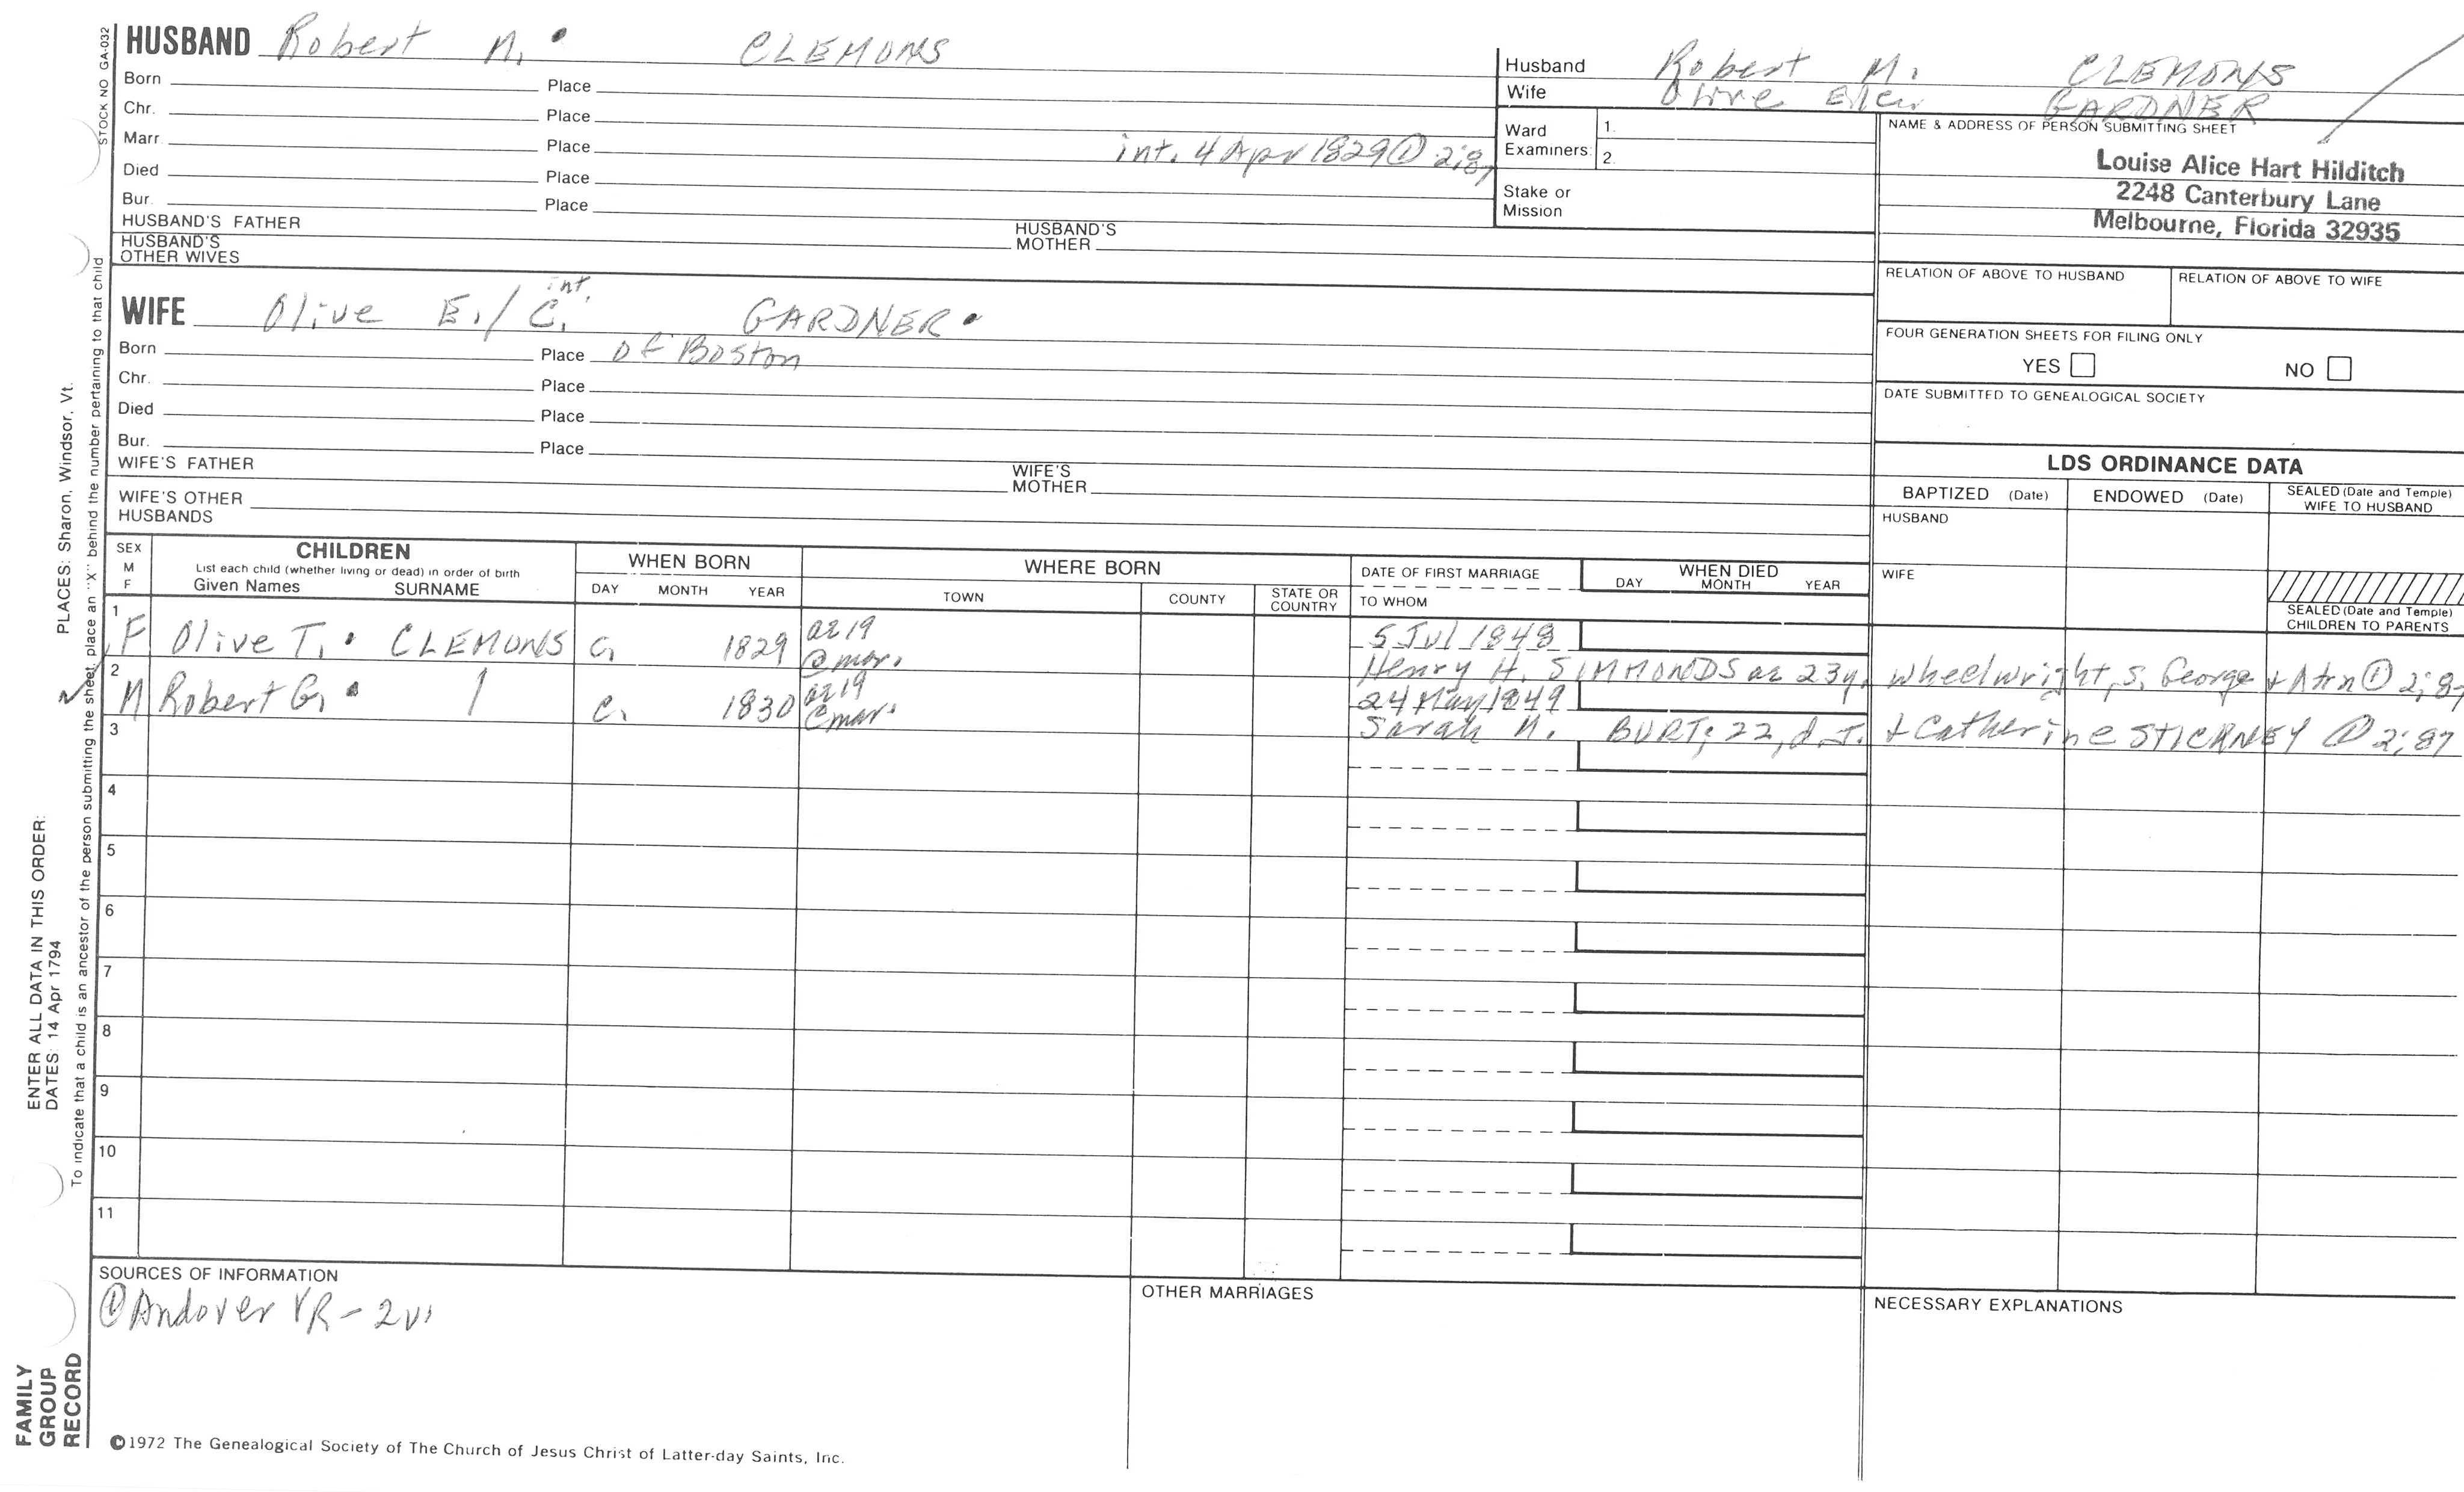 STOCK NO GA-032
HUSBAND Robert M. CLEMONS
Born Place
Chr. Place
Marr. Place int. 4 Apr 1829 ① 2;87
Died Place
Bur. Place
HUSBAND'S FATHER HUSBAND'S MOTHER
HUSBAND'S OTHER WIVES
Husband Robert M. CLEMONS
Wife Olive GARDNER
Ward Examiners: 1.
2.
Stake or Mission
NAME & ADDRESS OF PERSON SUBMITTING SHEET
Louise Alice Hart Hilditch
2248 Canterbury Lane
Melbourne, Florida 32935
RELATION OF ABOVE TO HUSBAND RELATION OF ABOVE TO WIFE
FOUR GENERATION SHEETS FOR FILING ONLY
YES NO
DATE SUBMITTED TO GENEALOGICAL SOCIETY
int.
WIFE Olive E./C. GARDNER
Born Place of Boston
Chr. Place
Died Place
Bur. Place
WIFE'S FATHER WIFE'S MOTHER
WIFE'S OTHER HUSBANDS
LDS ORDINANCE DATA
BAPTIZED (Date) ENDOWED (Date) SEALED (Date and Temple) WIFE TO HUSBAND
HUSBAND
WIFE
SEALED (Date and Temple) CHILDREN TO PARENTS
SEX M F
CHILDREN
List each child (whether living or dead) in order of birth
Given Names SURNAME
WHEN BORN
DAY MONTH YEAR
WHERE BORN
TOWN COUNTY STATE OR COUNTRY
DATE OF FIRST MARRIAGE
TO WHOM
WHEN DIED
DAY MONTH YEAR
1 F Olive T. CLEMONS c. 1829 ae 19 @ mar. 5 Jul 1848
Henry H. SIMMONDS ae 23y. wheelwright, s. George + ① 2;87
2 M Robert G. c. 1830 ae 19 @ mar. 24 May 1849
Sarah N. BURT; 22, d. J. + Catherine STICKNEY ① 2;87
3
4
5
6
7
8
9
10
11
SOURCES OF INFORMATION
① Andover VR - 2v.
OTHER MARRIAGES
NECESSARY EXPLANATIONS
©1972 The Genealogical Society of The Church of Jesus Christ of Latter-day Saints, Inc.
FAMILY GROUP RECORD
ENTER ALL DATA IN THIS ORDER:
DATES: 14 Apr 1794
PLACES: Sharon, Windsor, Vt.
To indicate that a child is an ancestor of the person submitting the sheet, place an "X" behind the number pertaining to that child